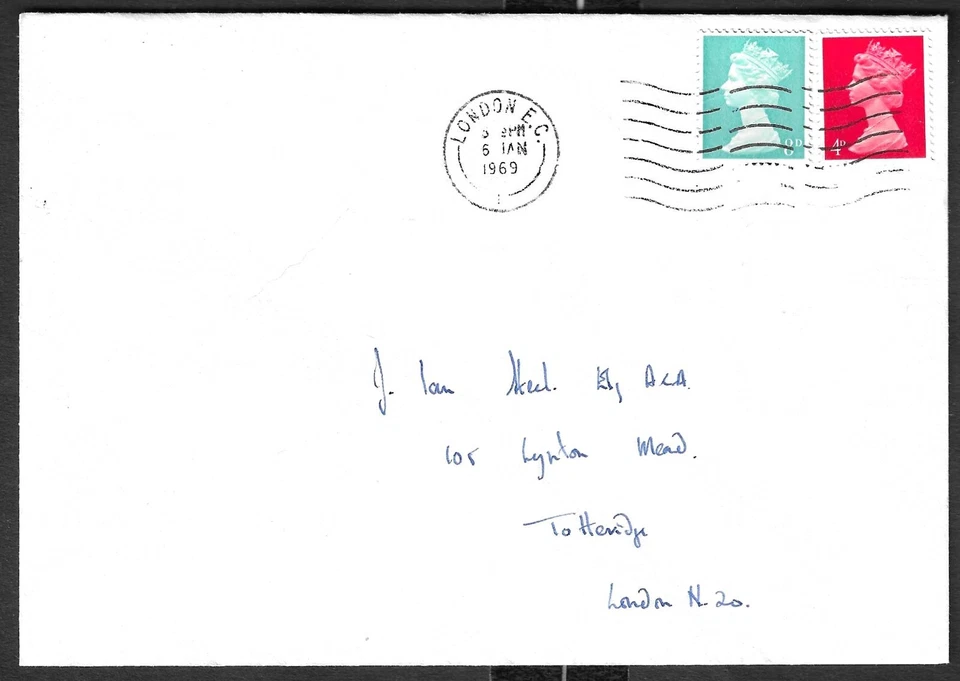 LONDON E.C.
PM
6 JAN
1969
8D
4D
J. Ian Steel. Esq ACA.
105 Lynton Mead.
Totteridge
London N. 20.